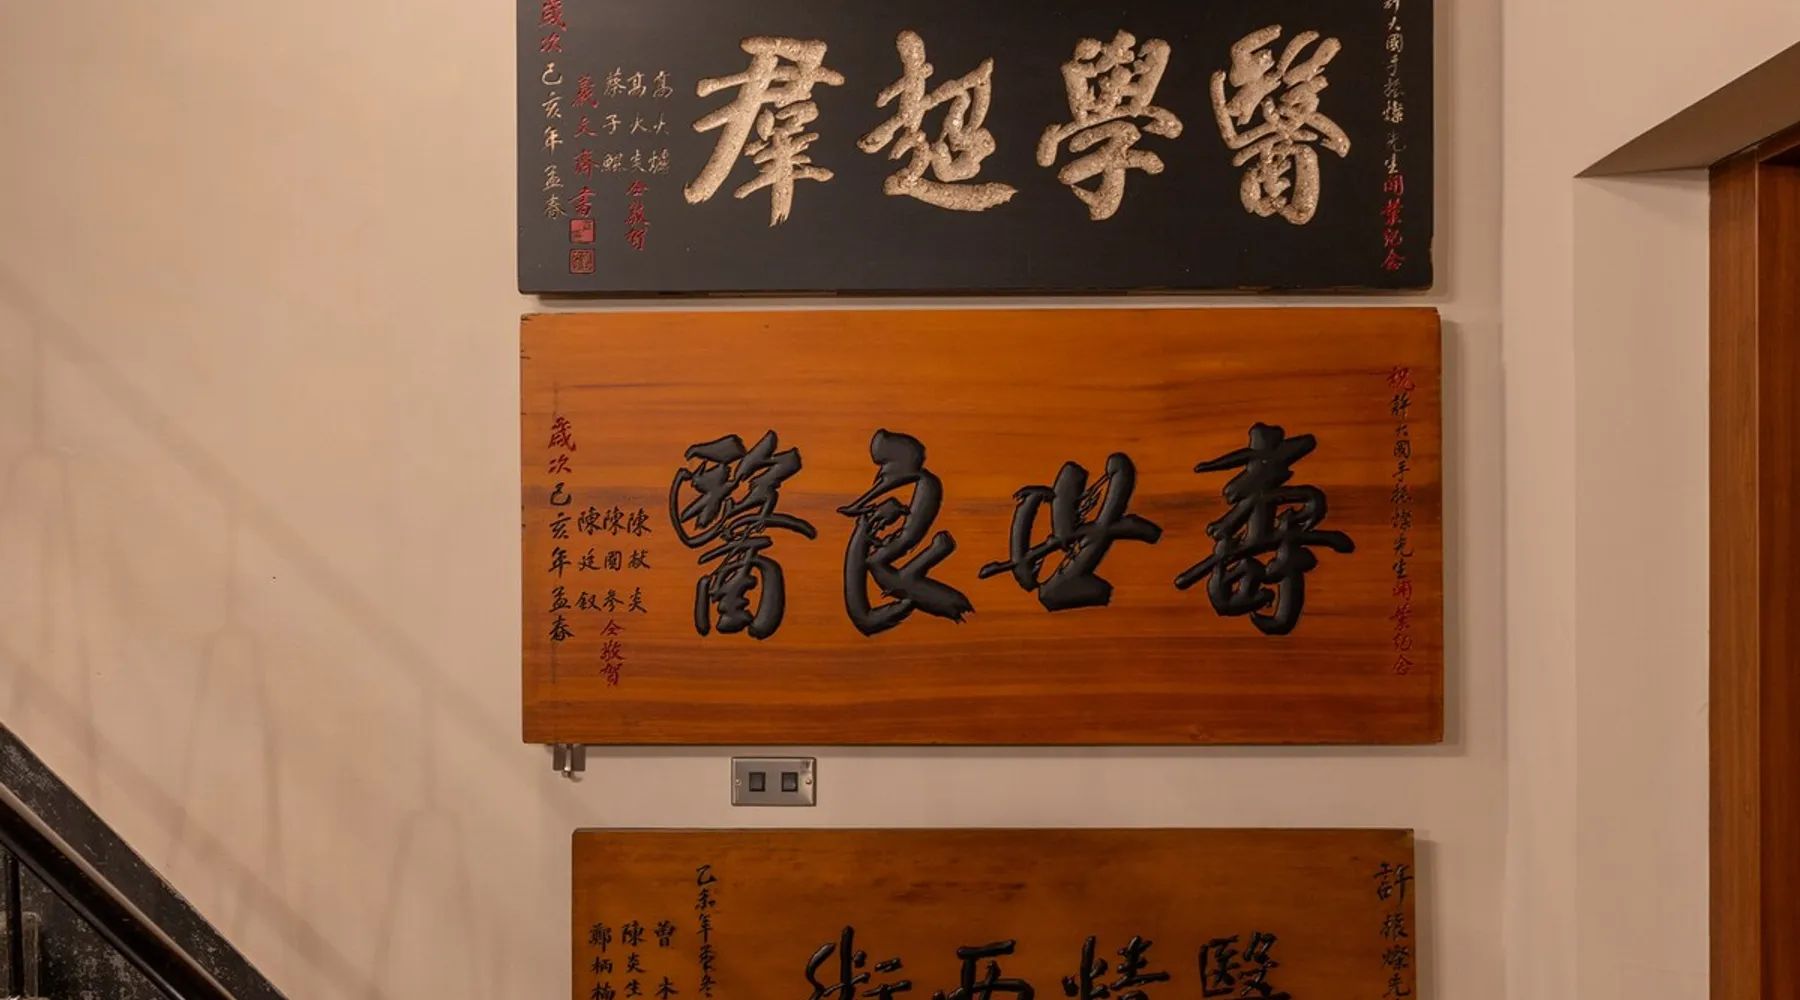 許大國手振燦先生開業紀念
醫學超羣
高火爐
高火炎
蔡子鯤
仝敬賀
義文齋書
歲次己亥年孟春
祝許大國手振燦先生開業紀念
壽世良醫
陳献炎
陳圓參
陳廷釵
仝敬賀
歲次己亥年孟春
許振燦先
醫精西術
曾木
陳炎生
鄭柄楠
乙年季冬